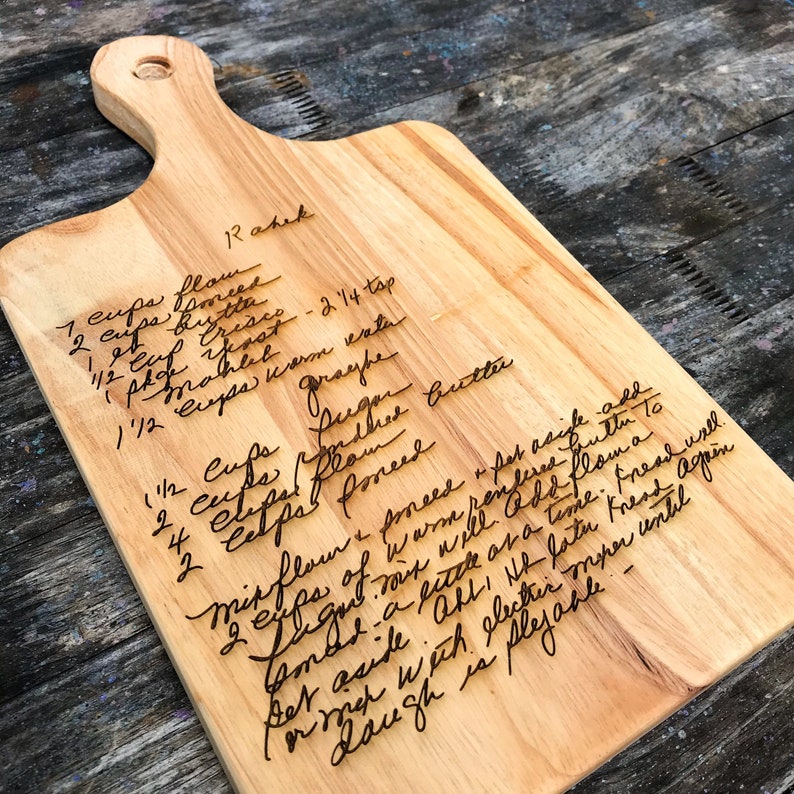 Kahek
7 cups flour
2 cups smeed
1 lb butter
1/2 cup Crisco
1 pkge yeast - 2 1/4 tsp
Mahleb
1 1/2 cups warm water
graybe
1 1/2 cups sugar
2 cups rendered butter
4 cups flour
2 cups smeed
Mix flour & smeed & set aside - add
2 cups of warm rendered butter to
sugar. Mix well. Add flour &
smeed - a little at a time. Knead well.
Set aside. Abt 1 hr later Knead again
or mix with electric mixer until
dough is plyable. -